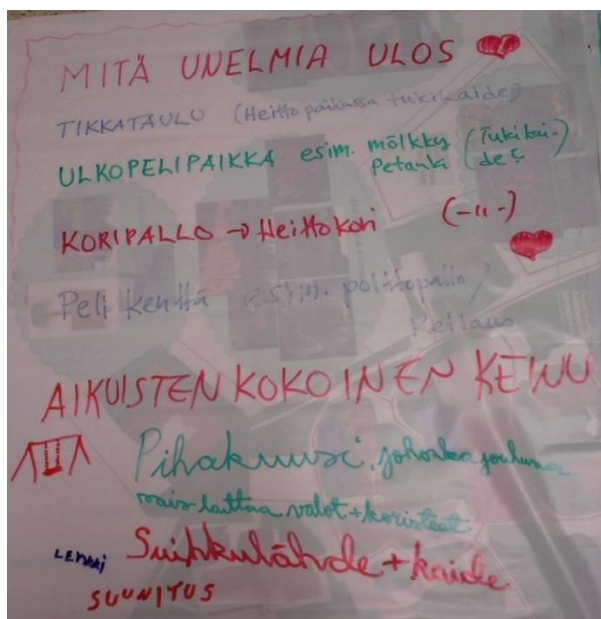 MITÄ UNELMIA ULOS
TIKKATAULU (Heittopaikassa tukikaide)
ULKOPELIPAIKKA esim. mölkky (Tukikai-
petanki de
KORIPALLO → Heittokori (-"-)
Pelikenttä (esim. polttopallo/
Keilaus
AIKUISTEN KOKOINEN KEINU
Pihakuusi, johonka jouluna
vois laittaa valot + koristeet
Suihkulähde + kaide
LEMMI
SUUNITUS